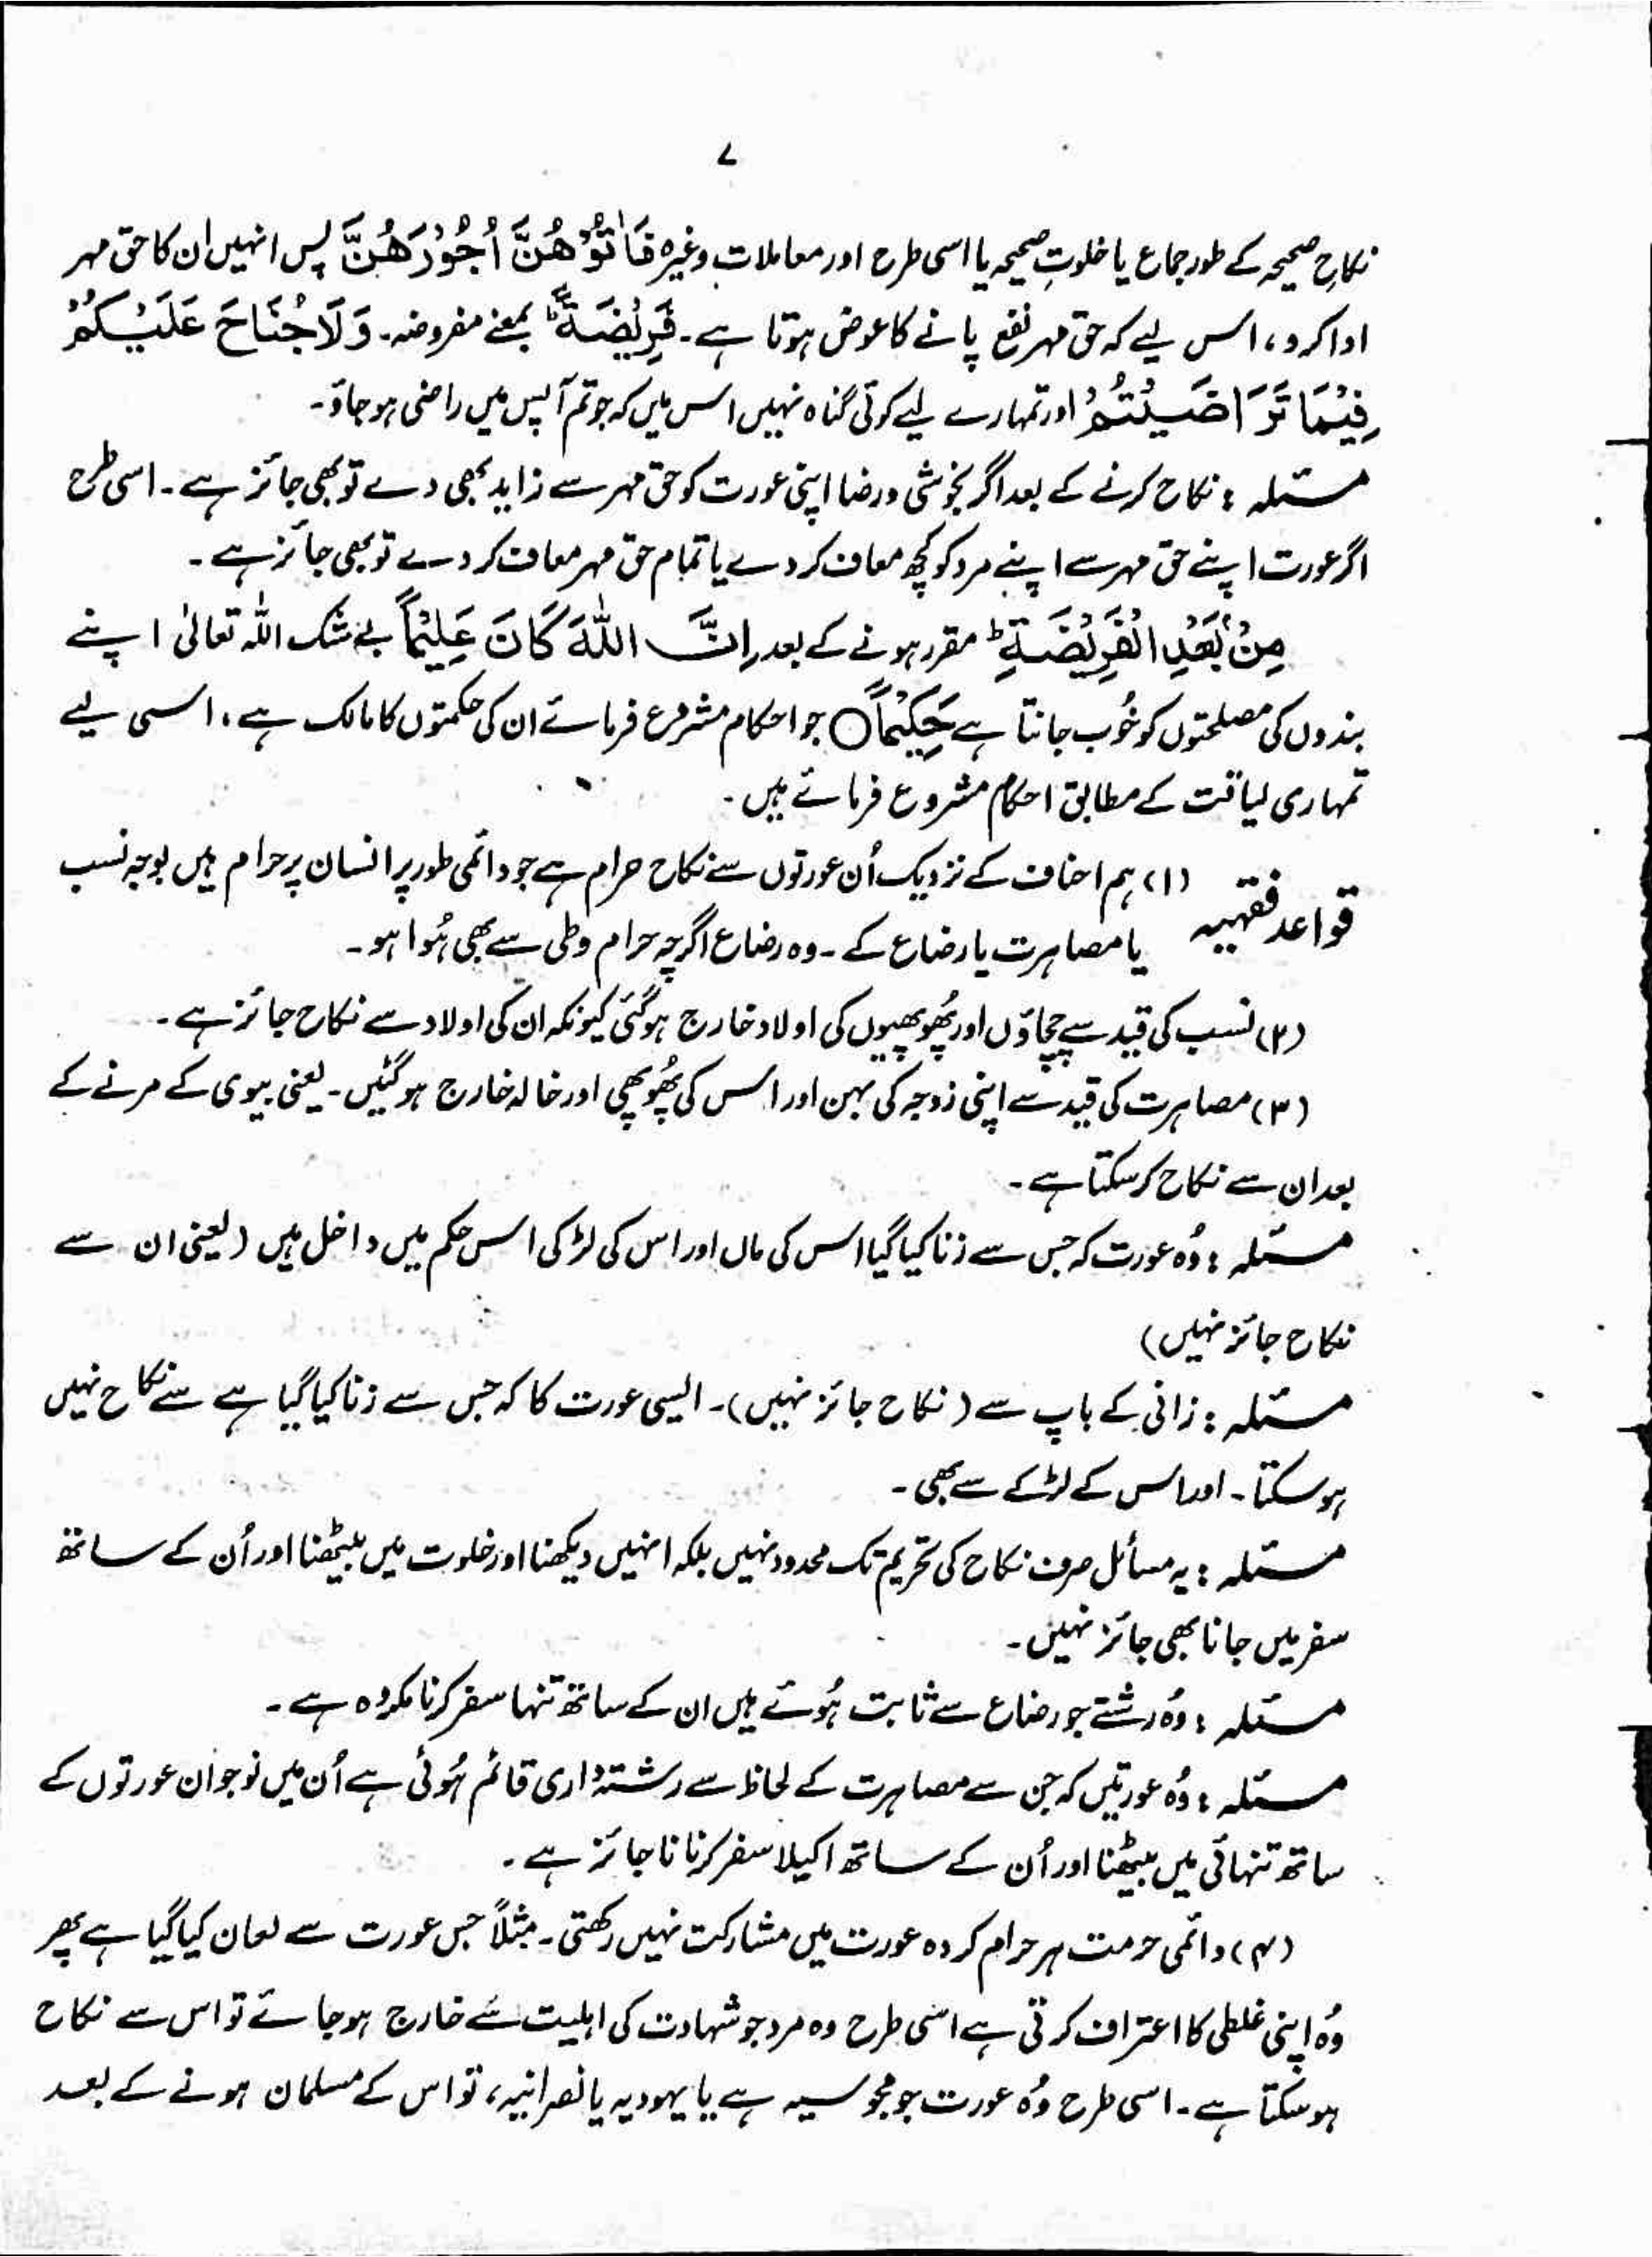 ۷
نکاحِ صحیحہ کے طور جماع یا خلوتِ صحیحہ یا اسی طرح اور معاملات وغیرہ فَاٰتُوْهُنَّ اُجُوْرَهُنَّ پس انہیں ان کا حق مہر
ادا کرو، اس لیے کہ حق مہر نفع پانے کا عوض ہوتا ہے۔ فَرِیْضَةً ؕ بمعنے مفروضہ۔ وَلَا جُنَاحَ عَلَیْكُمْ
فِیْمَا تَرَاضَیْتُمْ اور تمہارے لیے کوئی گناہ نہیں اس میں کہ جو تم آپس میں راضی ہو جاؤ۔
مسئلہ : نکاح کرنے کے بعد اگر بخوشی ورضا اپنی عورت کو حق مہر سے زاید بھی دے تو بھی جائز ہے۔ اسی طرح
اگر عورت اپنے حق مہر سے اپنے مرد کو کچھ معاف کر دے یا تمام حق مہر معاف کر دے تو بھی جائز ہے۔
مِنْۢ بَعْدِ الْفَرِیْضَةِ ؕ مقرر ہونے کے بعد اِنَّ اللّٰهَ كَانَ عَلِیْمًا بے شک اللہ تعالیٰ اپنے
بندوں کی مصلحتوں کو خُوب جانتا ہے حَكِیْمًا ○ جو احکام مشروع فرمائے ان کی حکمتوں کا مالک ہے، اسی لیے
تمہاری لیاقت کے مطابق احکام مشروع فرمائے ہیں۔
قواعد فقہیہ (۱) ہم احناف کے نزدیک اُن عورتوں سے نکاح حرام ہے جو دائمی طور پر انسان پر حرام ہیں بوجہ نسب
یا مصاہرت یا رضاع کے۔ وہ رضاع اگرچہ حرام وطی سے بھی ہُوا ہو۔
(۲) نسب کی قید سے چچاؤں اور پُھوپھیوں کی اولاد خارج ہوگئی کیونکہ ان کی اولاد سے نکاح جائز ہے۔
(۳) مصاہرت کی قید سے اپنی زوجہ کی بہن اور اس کی پُھوپھی اور خالہ خارج ہوگئیں۔ یعنی بیوی کے مرنے کے
بعد ان سے نکاح کر سکتا ہے۔
مسئلہ : وُہ عورت کہ جس سے زنا کیا گیا اس کی ماں اور اس کی لڑکی اس حکم میں داخل ہیں (یعنی ان سے
نکاح جائز نہیں)
مسئلہ : زانی کے باپ سے (نکاح جائز نہیں)۔ ایسی عورت کا کہ جس سے زنا کیا گیا ہے سے نکاح نہیں
ہو سکتا۔ اور اس کے لڑکے سے بھی۔
مسئلہ : یہ مسائل صرف نکاح کی تحریم تک محدود نہیں بلکہ انہیں دیکھنا اور خلوت میں بیٹھنا اور اُن کے ساتھ
سفر میں جانا بھی جائز نہیں۔
مسئلہ : وُہ رشتے جو رضاع سے ثابت ہُوئے ہیں ان کے ساتھ تنہا سفر کرنا مکروہ ہے۔
مسئلہ : وُہ عورتیں کہ جن سے مصاہرت کے لحاظ سے رشتہ داری قائم ہُوئی ہے اُن میں نوجوان عورتوں کے
ساتھ تنہائی میں بیٹھنا اور اُن کے ساتھ اکیلا سفر کرنا ناجائز ہے۔
(۴) دائمی حرمت ہر حرام کردہ عورت میں مشارکت نہیں رکھتی۔ مثلاً جس عورت سے لعان کیا گیا ہے پھر
وُہ اپنی غلطی کا اعتراف کرتی ہے اسی طرح وہ مرد جو شہادت کی اہلیت سے خارج ہو جائے تو اس سے نکاح
ہو سکتا ہے۔ اسی طرح وُہ عورت جو مجوسیہ ہے یا یہودیہ یا نصرانیہ، تو اس کے مسلمان ہونے کے بعد